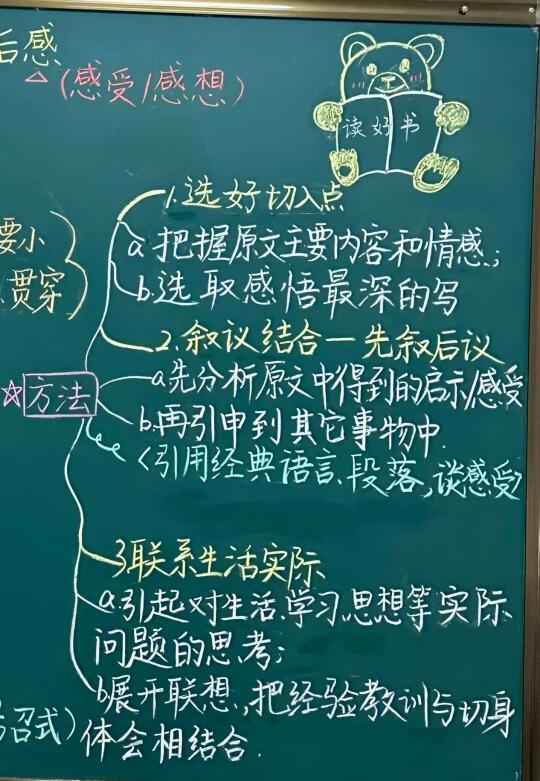 后感
(感受/感想)
读好书
1.选好切入点
要小
a.把握原文主要内容和情感;
贯穿
b.选取感悟最深的写
2.叙议结合—先叙后议
☆方法
a.先分析原文中得到的启示/感受
b.再引申到其它事物中.
<引用经典语言、段落,谈感受
3.联系生活实际
a.引起对生活、学习、思想等实际
问题的思考;
b展开联想,把经验教训与切身
体会相结合.
号召式)